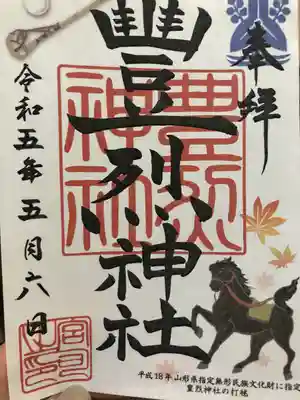 奉拝
豊烈神社
豊烈神社
令和五年五月六日
宮司之印
平成18年山形県指定無形民族文化財に指定
豊烈神社の打毬